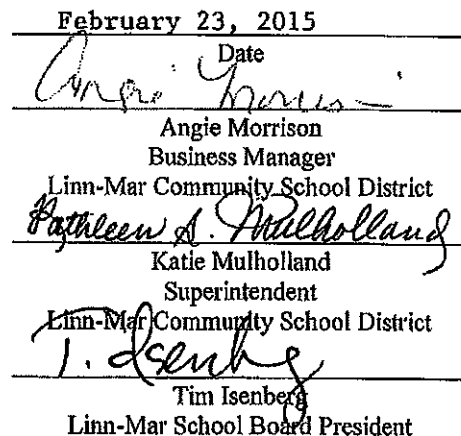 February 23, 2015
Date
Angie Morrison
Angie Morrison
Business Manager
Linn-Mar Community School District
Kathleen A. Mulholland
Katie Mulholland
Superintendent
Linn-Mar Community School District
T. Isenberg
Tim Isenberg
Linn-Mar School Board President